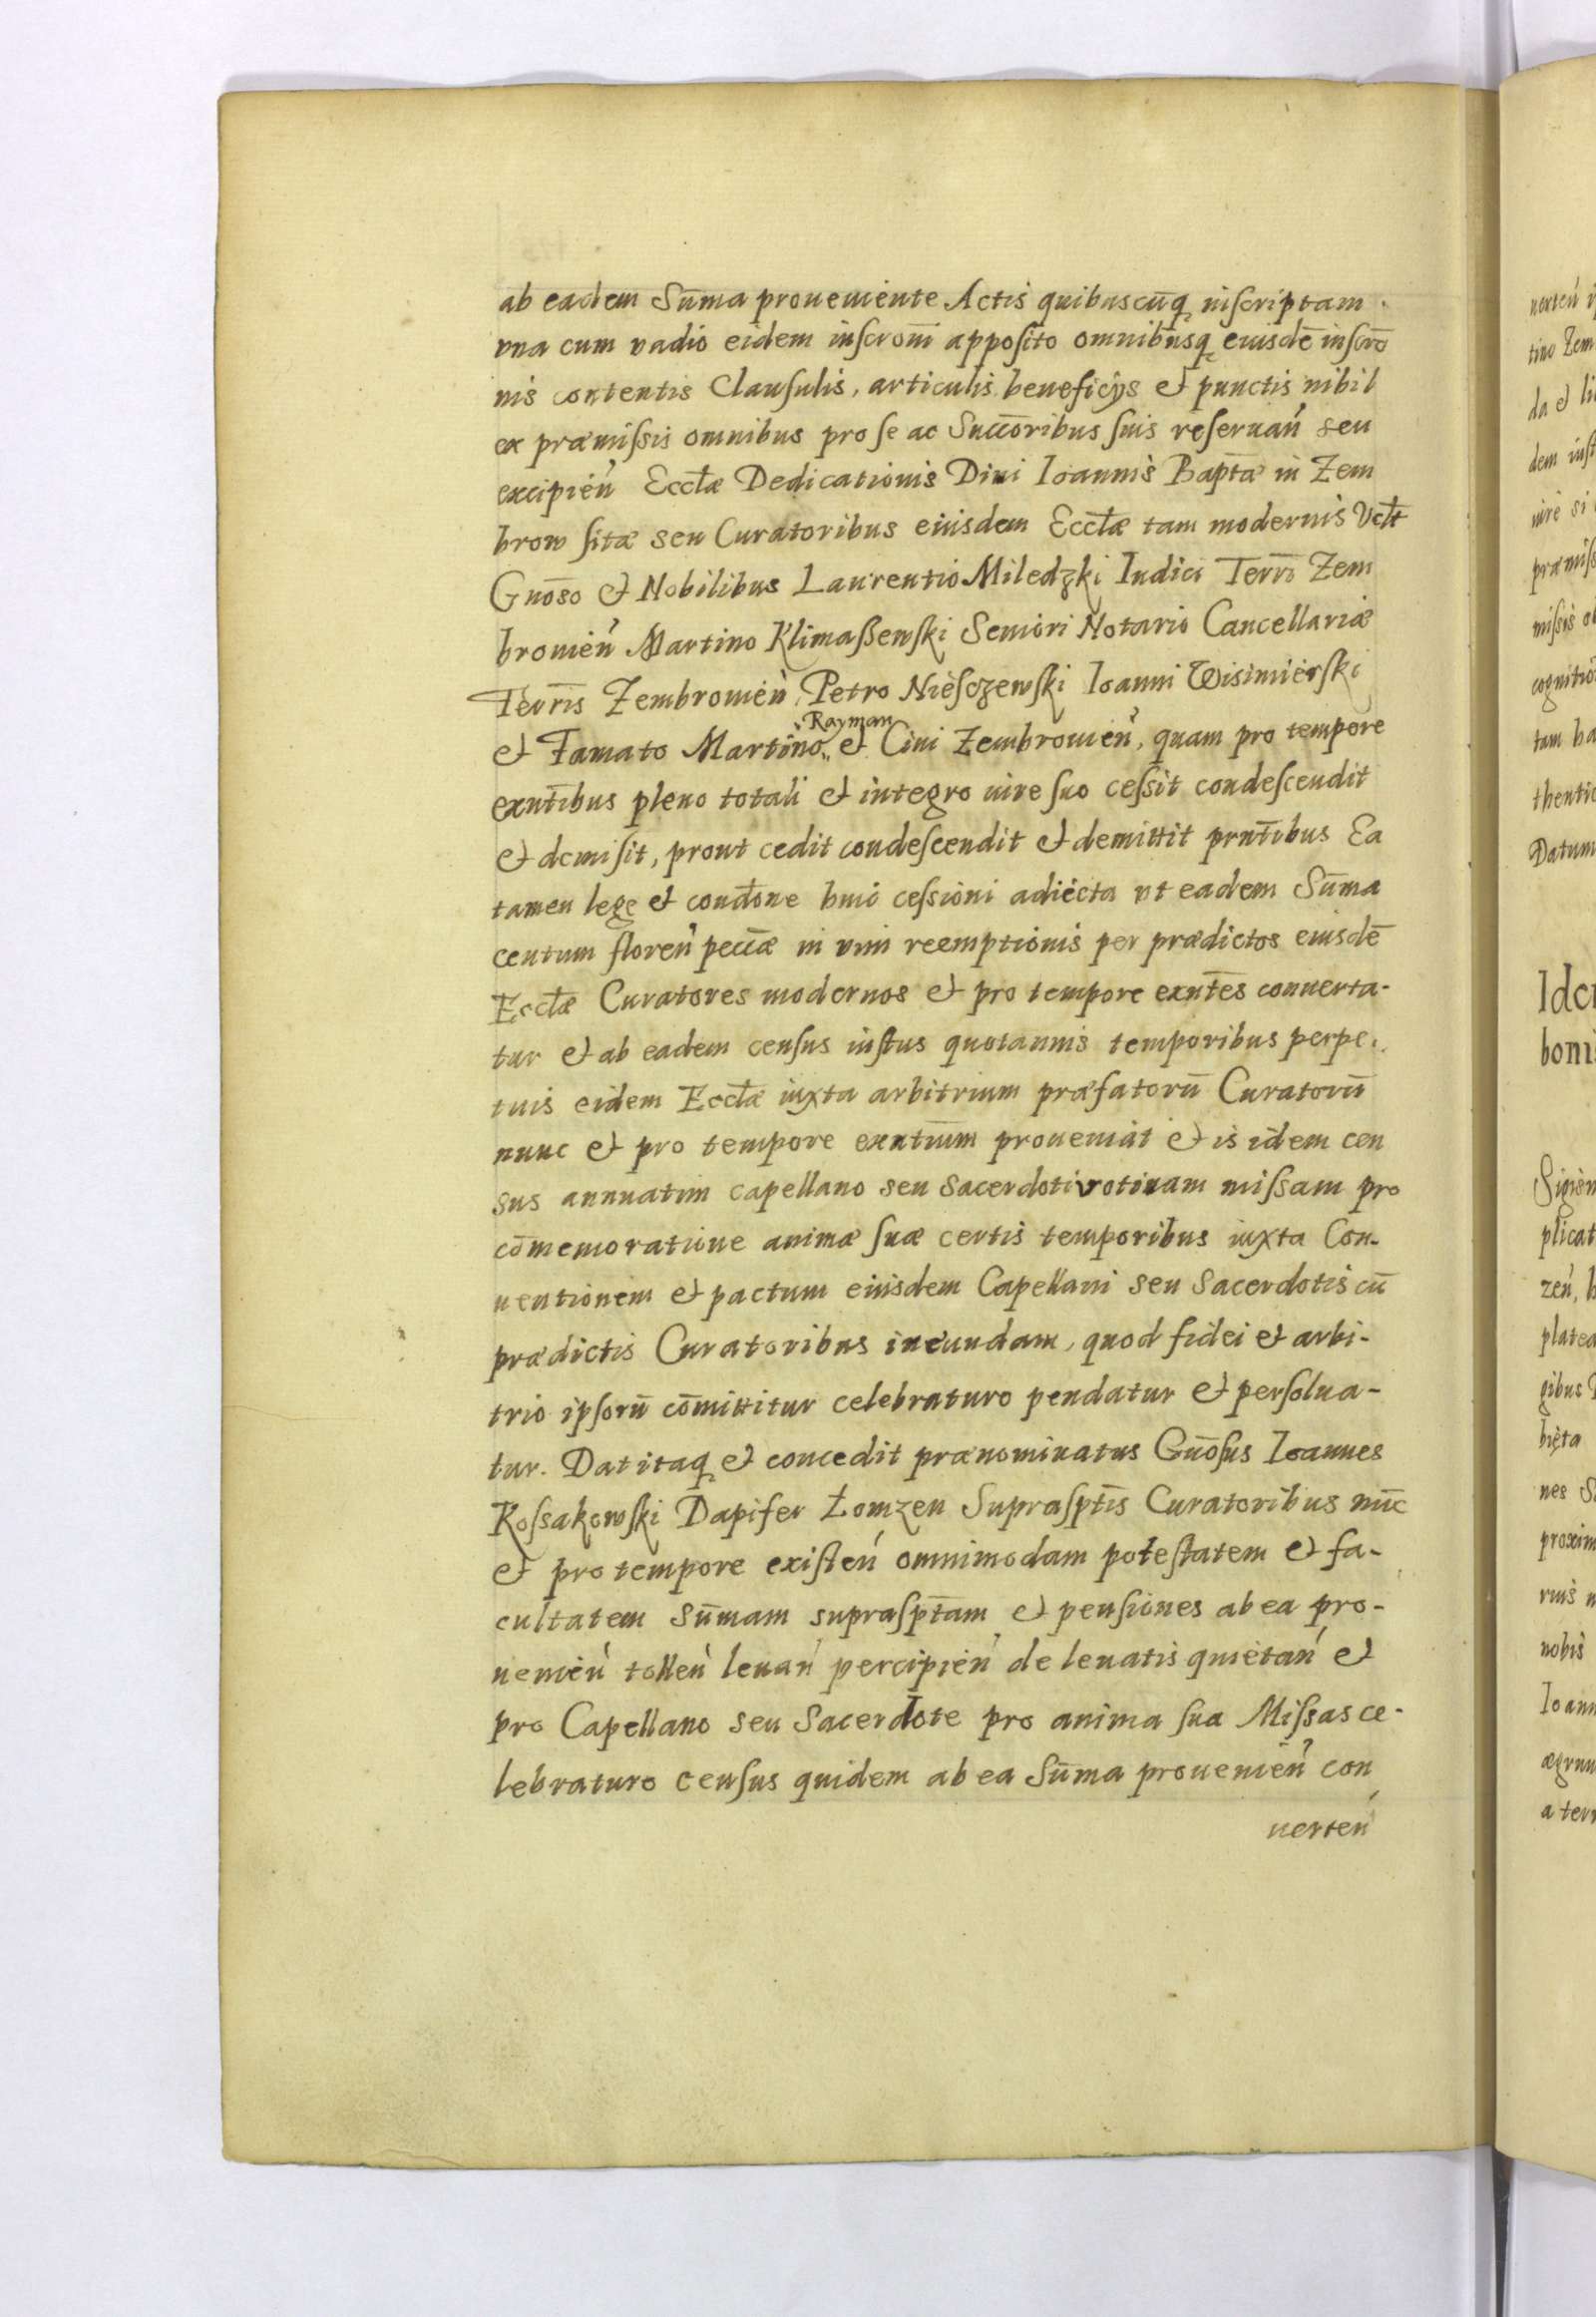 ab eadem Sūma proueniente Actis quibuscūq inſcriptam
vna cum vadio eidem inſcrōni appoſito omnibusq eiusdē inſcrō
nis contentis Clauſulis, articulis beneficijs et punctis nihil
ex præmiſsis omnibus pro ſe ac Succōribus ſuis reſeruań seu
excipień Eccłæ Dedicationis Diui Ioannis Bapt̄æ in Zem
brow ſitæ seu Curatoribus eiusdem Eccłæ tam modernis Vclt
Gnōso et Nobilibus Laurentio Miledzki Iudici Terrī Zem
browień Martino Klimaßewſki Seniori Notario Cancellariæ
Terrīs Zembrowień, Petro Nieſczewſki Ioanni Wisimierſki
Rayman
et Famato Martino et Ciui Zembrowień, quam pro tempore
exnt̄ibus pleno totali et integro iure ſuo ceſsit condeſcendit
et demiſit, prout cedit condeſcendit et demittit prnt̄ibus Ea
tamen lege et condōne huic ceſsioni adiecta vt eadem Sūma
centum floreń pecc̄æ in vim reemptionis per prædictos eiusdē
Eccłæ Curatores modernos et pro tempore exnt̄es conuerta-
tur et ab eadem cenſus iuſtus quotannis temporibus perpe
tuis eidem Eccłæ iuxta arbitrium præfatorū Curatorū
nunc et pro tempore exntīum proueniat et is idem cen
sus annuatim capellano seu Sacerdoti votiuam miſsam pro
cōmemoratione animæ ſuæ certis temporibus iuxta Con-
uentionem et pactum eiusdem Capellani seu Sacerdotis cū
prædictis Curatoribus ineundam, quod fidei et arbi-
trio ipſorū cōmittitur celebraturo pendatur et perſolua-
tur. Dat itaq et concedit prænominatus Gnōſus Ioannes
Koſsakowſki Dapifer Łomzen Supraſpt̄is Curatoribus nūc
et pro tempore exiſteń omnimodam poteſtatem et fa-
cultatem Sūmam supraſpt̄am et penſiones ab ea pro-
uenień tolleń leuań percipień de leuatis quietań et
pro Capellano seu Sacerdote pro anima ſua Miſsas ce-
lebraturo cenſus quidem ab ea Sūma prouenień con
uerteń